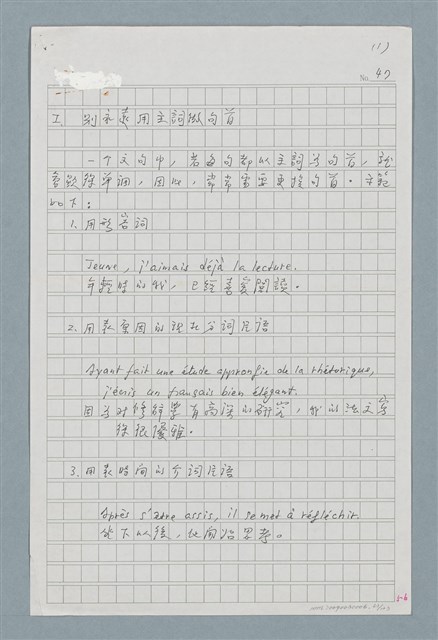 (1)
No. 47
I. 別永遠用主詞做句首
一个文句中，若每句都以主詞為句首，就
會顯得單調，因此，常常需要更換句首。方範
如下：
1. 用形容詞
Jeune, j'aimais déjà la lecture.
年輕時的我，已經喜愛閱讀。
2. 用表原因的現在分詞片語
Ayant fait une étude appronfie de la rhétorique,
j'écris un français bien élégant.
因為对修辭學有高深的研究，我的法文寫
得很優雅。
3. 用表時間的介詞片語
Après s'être assis, il se met à réfléchir.
坐下以後，他開始思考。
5-6